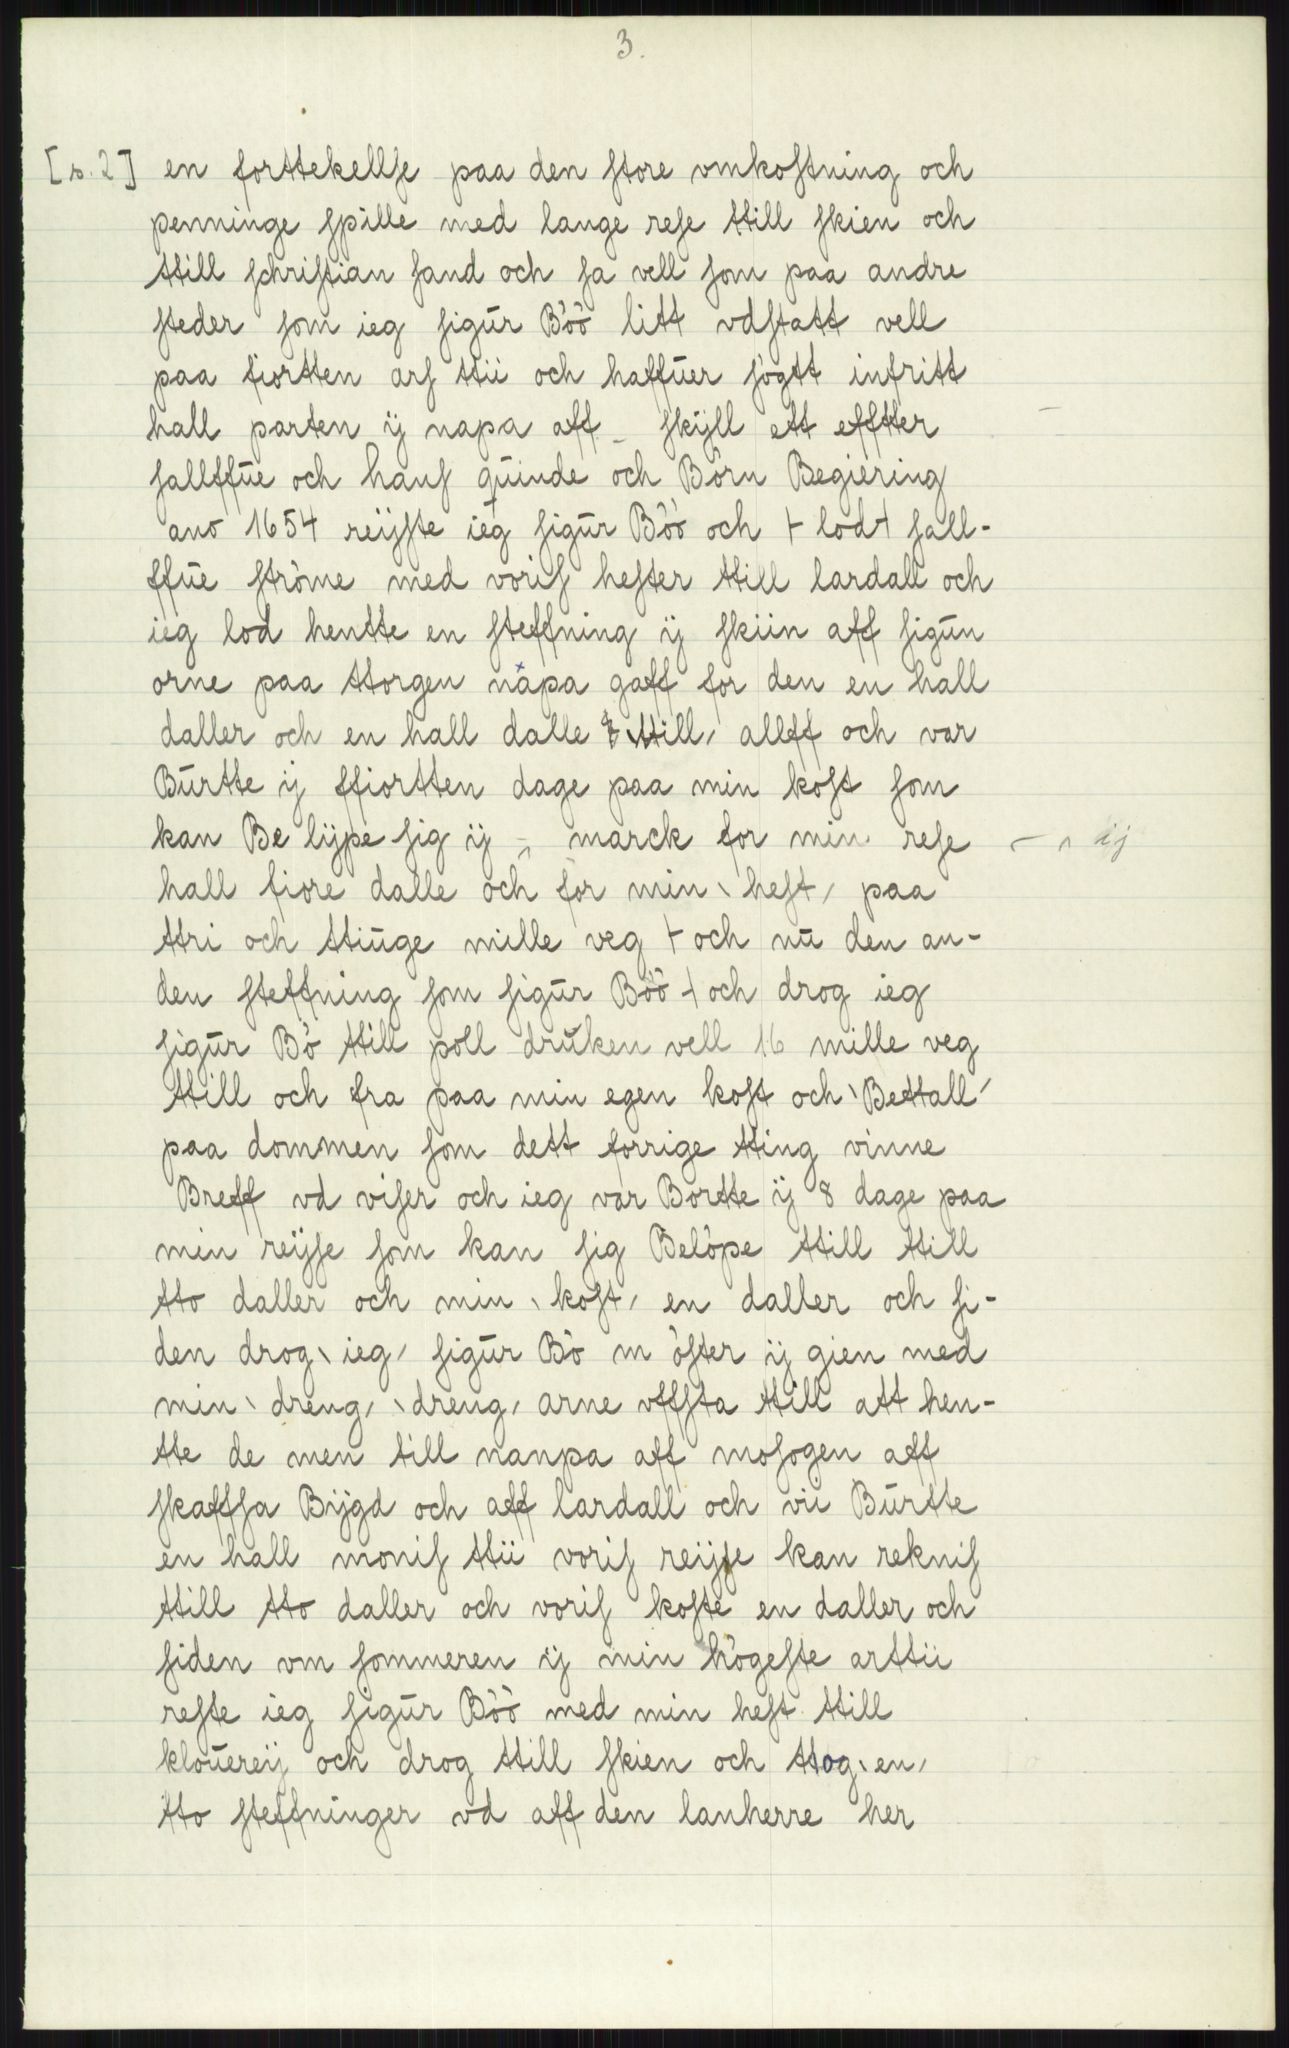 3.
[s. 2] en forttekellſe paa den ſtore vmkoſtning och
penninge ſpille med lange reſe ttill ſkien och
ttill ſchriſtian ſand och ſa vell ſom paa andre
ſteder ſom ieg ſigūr Böö litt vdſtatt vell
paa fiortten arſ ttii och haffūer ſögtt infritt
hall parten ÿ napa aff – ſkÿll ett efftter
ſallffūe och hanſ qūinde och Börn Begiering
ano 1654 reÿſte ieg ſigūr Böö och + lod + ſall-
ffūe ſtröme med voriſ heſter ttill lardall och
ieg lod hentte en ſteffning ÿ ſkiin aff ſigūn
orne paa ttorgen napa gaff for den en hall
daller och en hall dalle ttill, allff och var
Būrtte ÿ ffiortten dage paa min koſt ſom
kan Be lÿpe ſig ÿ – marck for min reſe – ij
hall fiore dalle och for min \ heſt / paa
ttri och ttiūge mille veg + och nū den an-
den ſteffning ſom ſigūr Böö + och drog ieg
ſigūr Bö ttill poll drūken vell 16 mille veg
ttill och fra paa min egen koſt och \ Bettall /
paa dommen ſom dett forrige tting vinne
Breff vd viſer och ieg var Bortte ÿ 8 dage paa
min reÿſe ſom kan ſig Belöpe ttill ttill
tto daller och min \ koſt / en daller och ſi-
den drog \ ieg / ſigūr Bö m öſter ÿ gien med
min \ dreng / \ dreng / arne vffſta ttill att hen-
tte de men till nanpa aff moſogen aff
ſkaffſa Bÿgd och aff lardall och vii Būrtte
en hall moniſ ttii voriſ reÿſe kan rekniſ
ttill tto daller och voriſ koſte en daller och
ſiden vm ſommeren ÿ min högeſte arttii
reſte ieg ſigūr Böö med min heſt ttill
kloūereÿ och drog ttill ſkien och ttog \ en /
tto ſteffninger vd aff den lanherre her